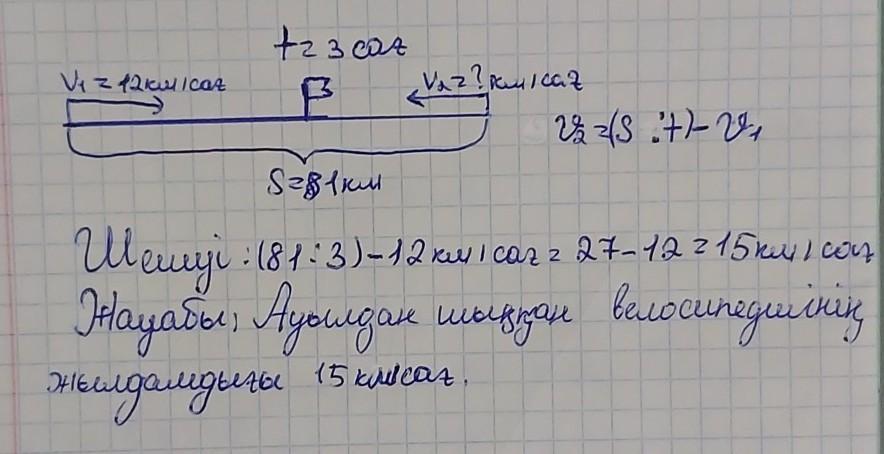 t = 3 сағ
V₁ = 12 км/сағ
V₂ = ? км/сағ
V₂ = (S : t) - V₁
S = 81 км
Шешуі : (81 : 3) - 12 км/сағ = 27 - 12 = 15 км/сағ
Жауабы, Ауылдан шыққан велосипедшінің
жылдамдығы 15 км/сағ.